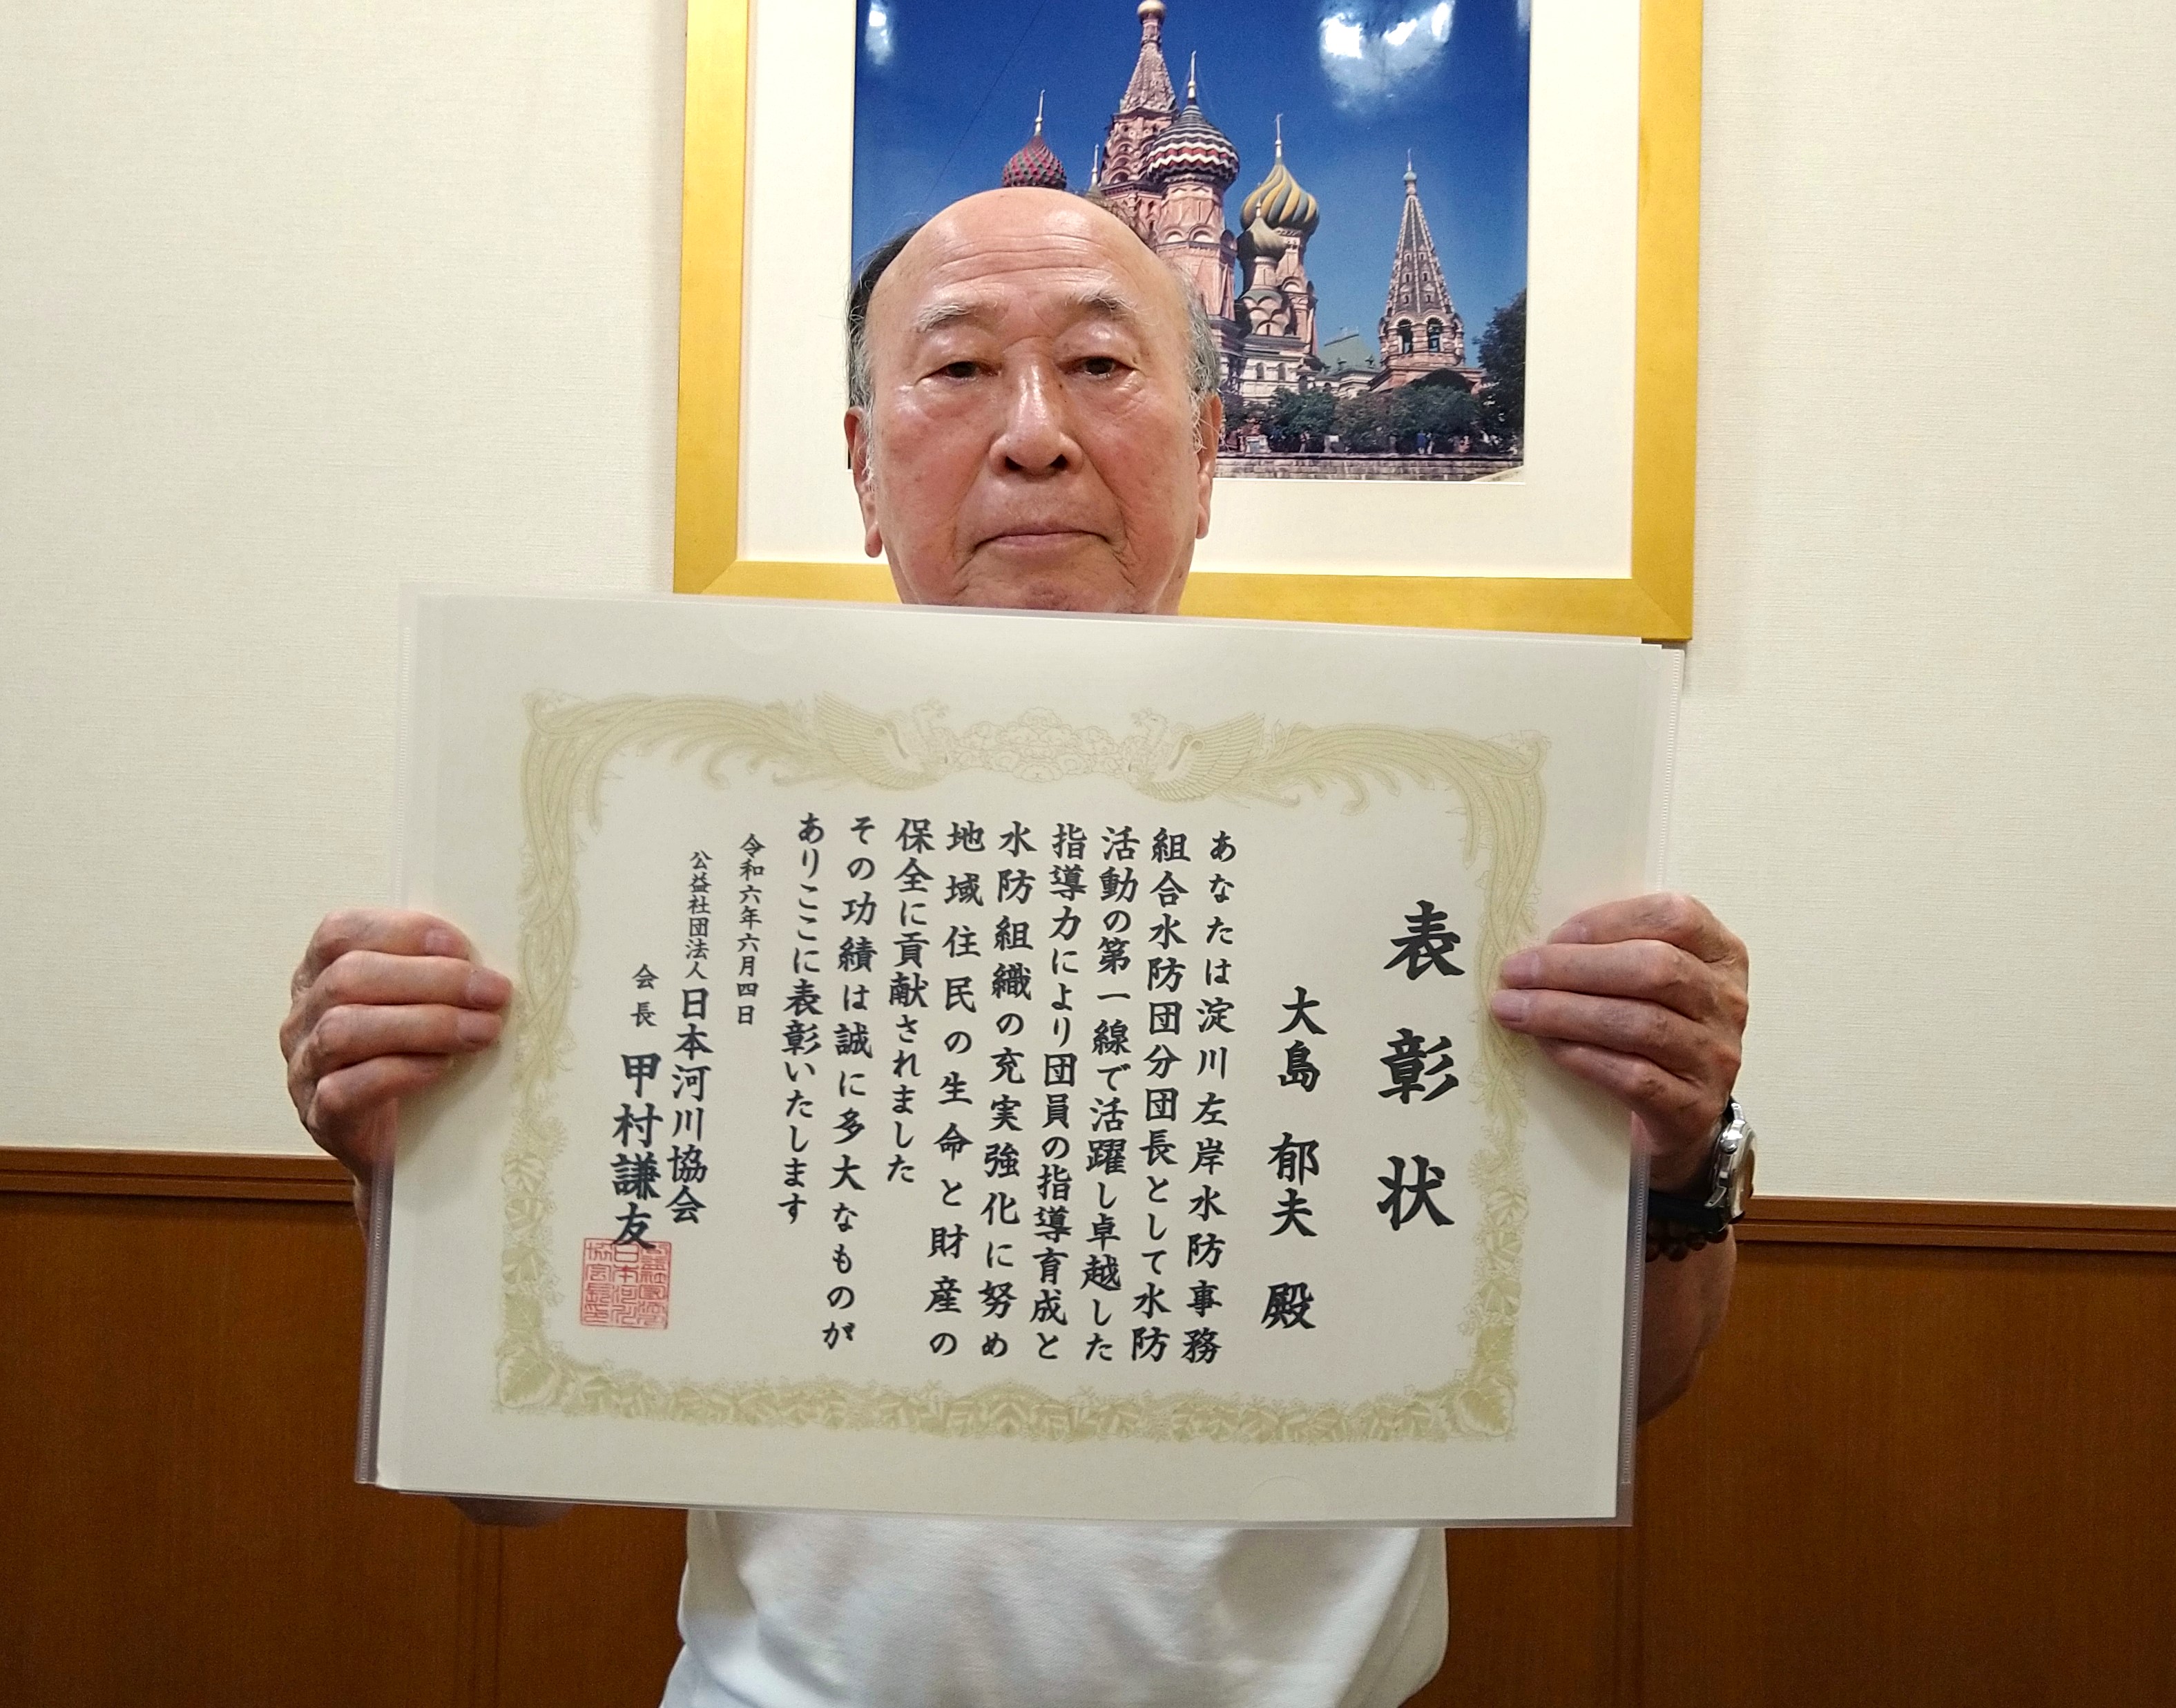 表彰状
大島 郁夫 殿
あなたは淀川左岸水防事務
組合水防団分団長として水防
活動の第一線で活躍し卓越した
指導力により団員の指導育成と
水防組織の充実強化に努め
地域住民の生命と財産の
保全に貢献されました
その功績は誠に多大なものが
ありここに表彰いたします
令和六年六月四日
公益社団法人日本河川協会
会長 甲村謙友